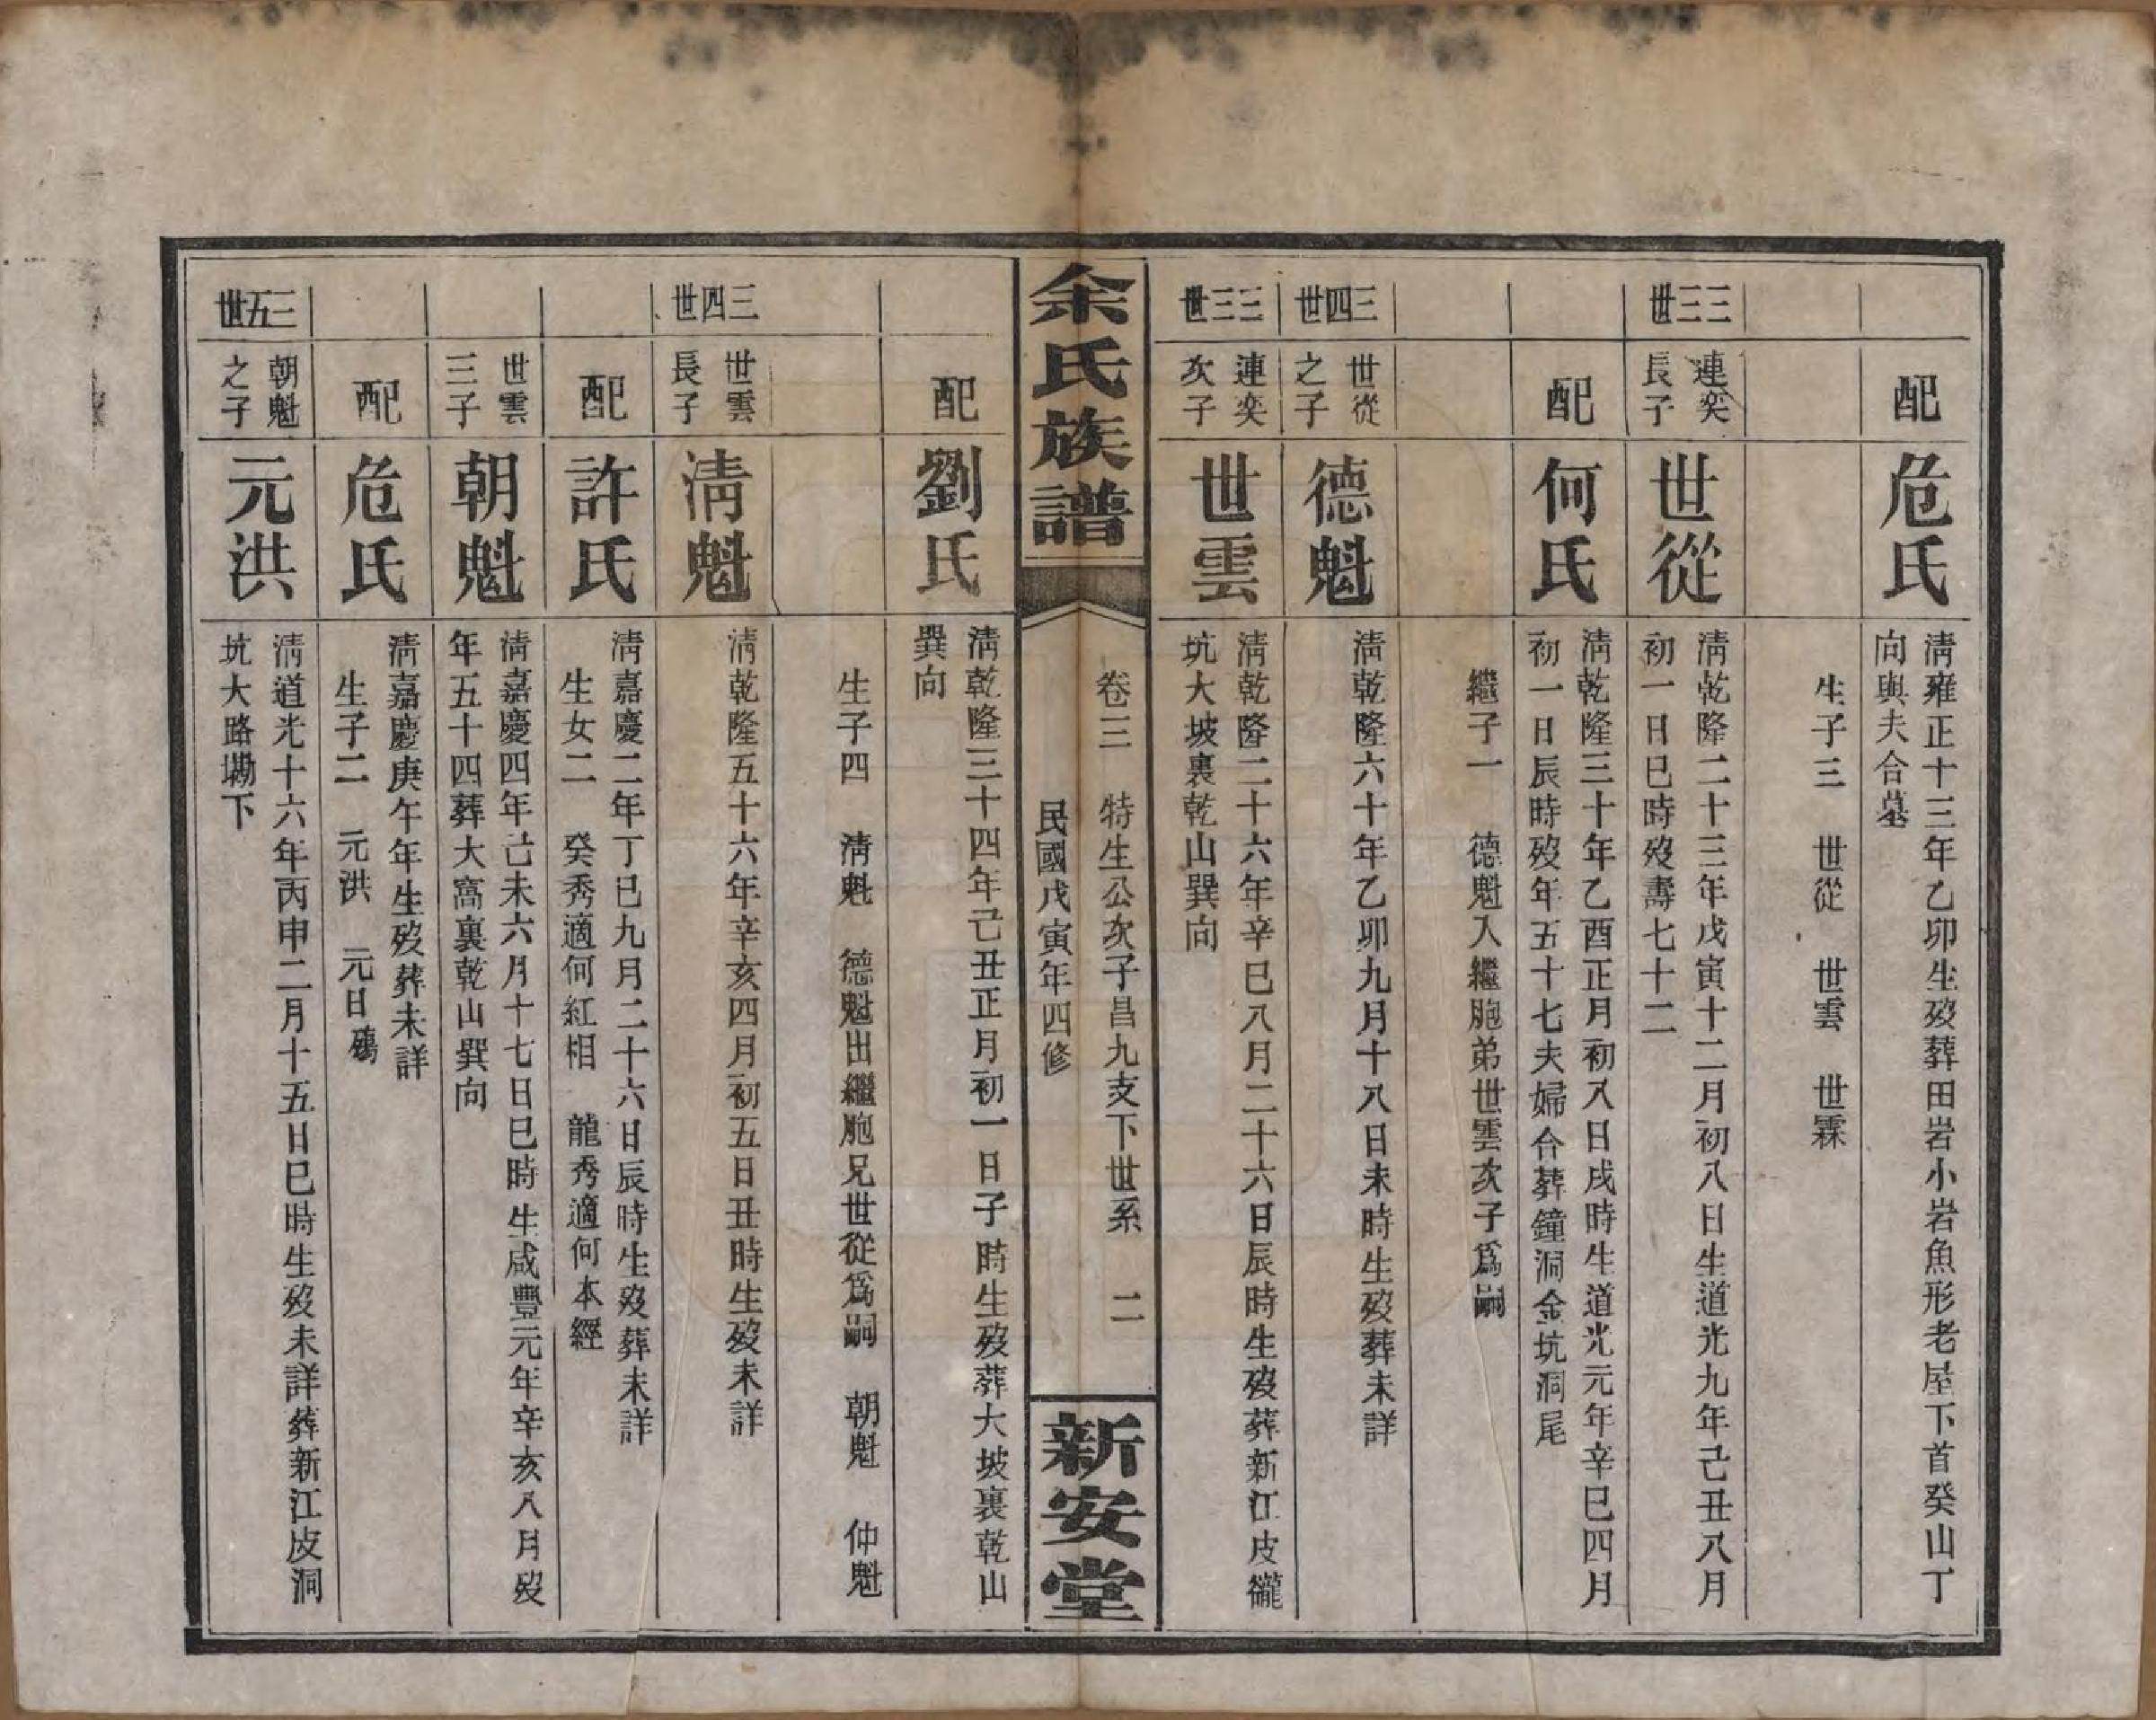 配
危氏
淸雍正十三年乙卯生歿葬田岩小岩魚形老屋下首癸山丁
向與夫合墓
生子三　世從　世雲　世霖
三三世
連奕
長子
世從
淸乾隆二十三年戊寅十二月初八日生道光九年己丑八月
初一日巳時歿壽七十二
配
何氏
淸乾隆三十年乙酉正月初八日戌時生道光元年辛巳四月
初一日辰時歿年五十七夫婦合葬鐘洞金坑洞尾
繼子一　德魁入繼胞弟世雲次子爲嗣
三四世
世從
之子
德魁
淸乾隆六十年乙卯九月十八日未時生歿葬未詳
三三世
連奕
次子
世雲
淸乾隆二十六年辛巳八月二十六日辰時生歿葬新江皮
坑大坡裏乾山巽向
余氏族譜
卷三　特生公次子昌九支下世系　二
民國戊寅年四修
新安堂
配
劉氏
淸乾隆三十四年己丑正月初一日子時生歿葬大坡裏乾山
巽向
生子四　淸魁　德魁出繼胞兄世從爲嗣　朝魁　仲魁
三四世
世雲
長子
淸魁
淸乾隆五十六年辛亥四月初五日丑時生歿未詳
配
許氏
淸嘉慶二年丁巳九月二十六日辰時生歿葬未詳
生女二　癸秀適何紅相　龍秀適何本經
世雲
三子
朝魁
淸嘉慶四年己未六月十七日巳時生咸豐元年辛亥八月歿
年五十四葬大窩裏乾山巽向
配
危氏
淸嘉慶庚午年生歿葬未詳
生子二　元洪　元日殤
三五世
朝魁
之子
元洪
淸道光十六年丙申二月十五日巳時生歿未詳葬新江皮洞
坑大路墈下